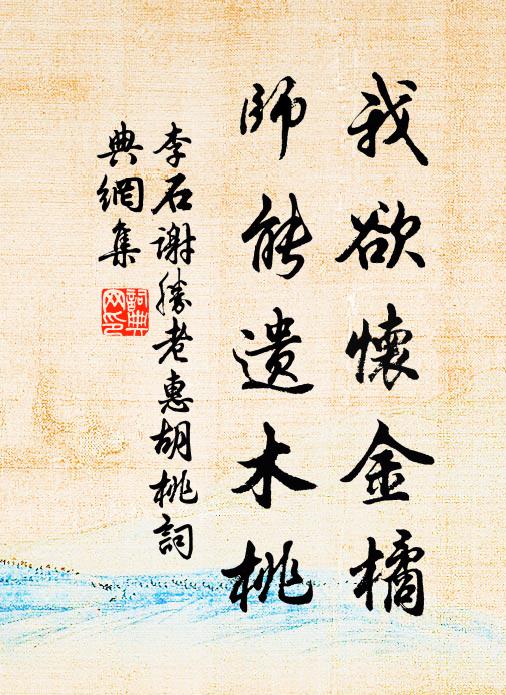 我欲懷金橘
師能遺木桃
李石谢勝老惠胡桃詞
典網集
詞典
网印